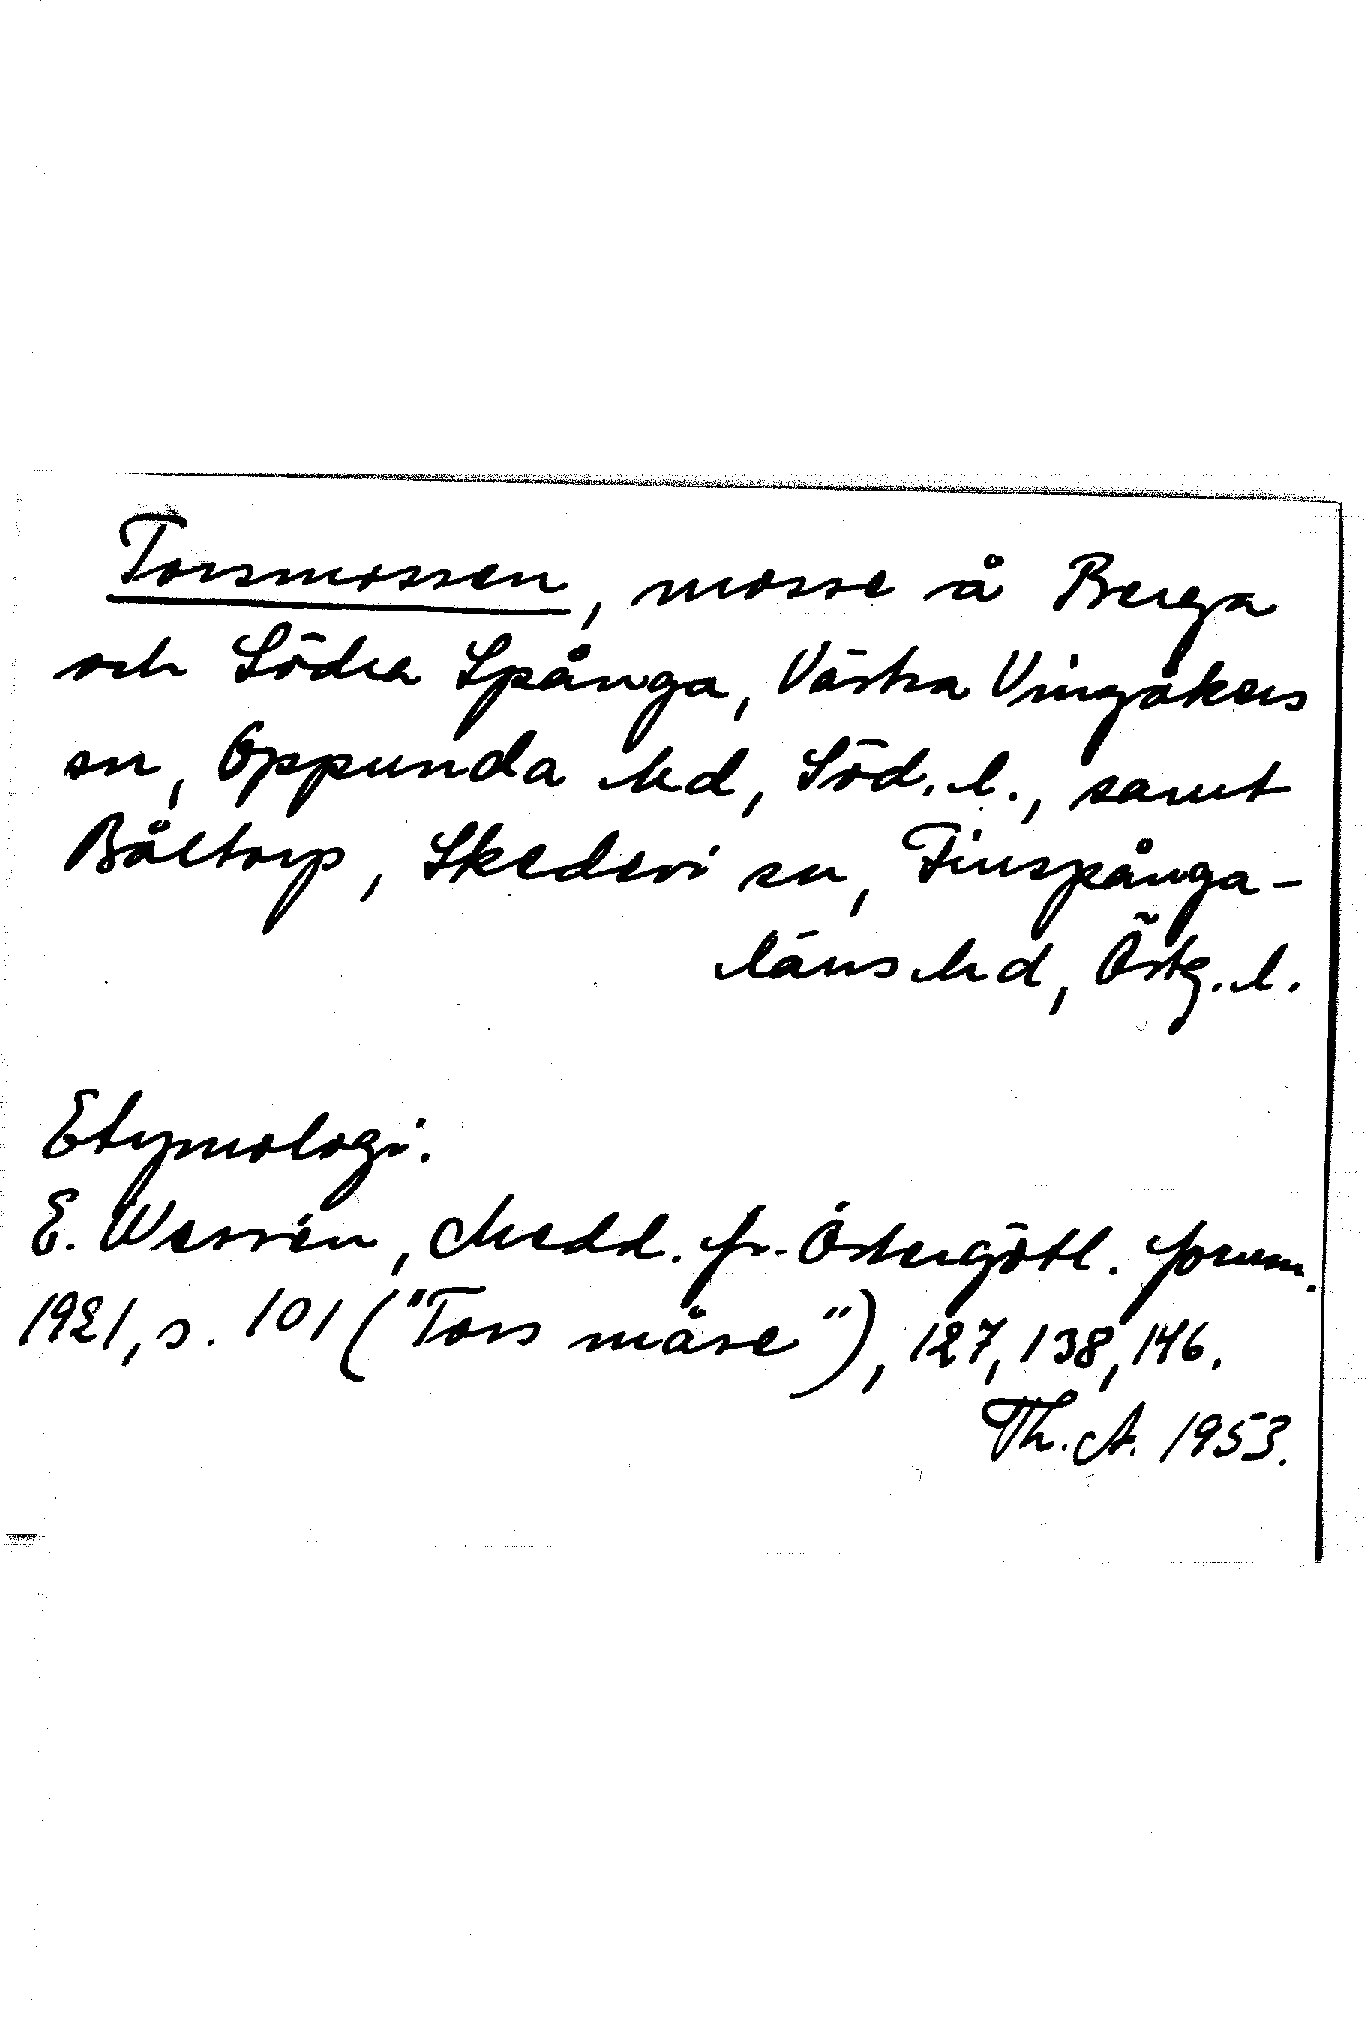 Torsmossen, mosse å Berga
och Södra Spånga, Västra Vingåkers
sn, Oppunda hd, Söd. l., samt
Båltorp, Skedevi sn, Finspånga-
läns hd, Östg. l.
Etymologi.
E. Wessén, Medd. fr. Östergötl. fornm.
1921, s. 101 ("Tors måse"), 127, 138, 146.
Th. A. 1953.